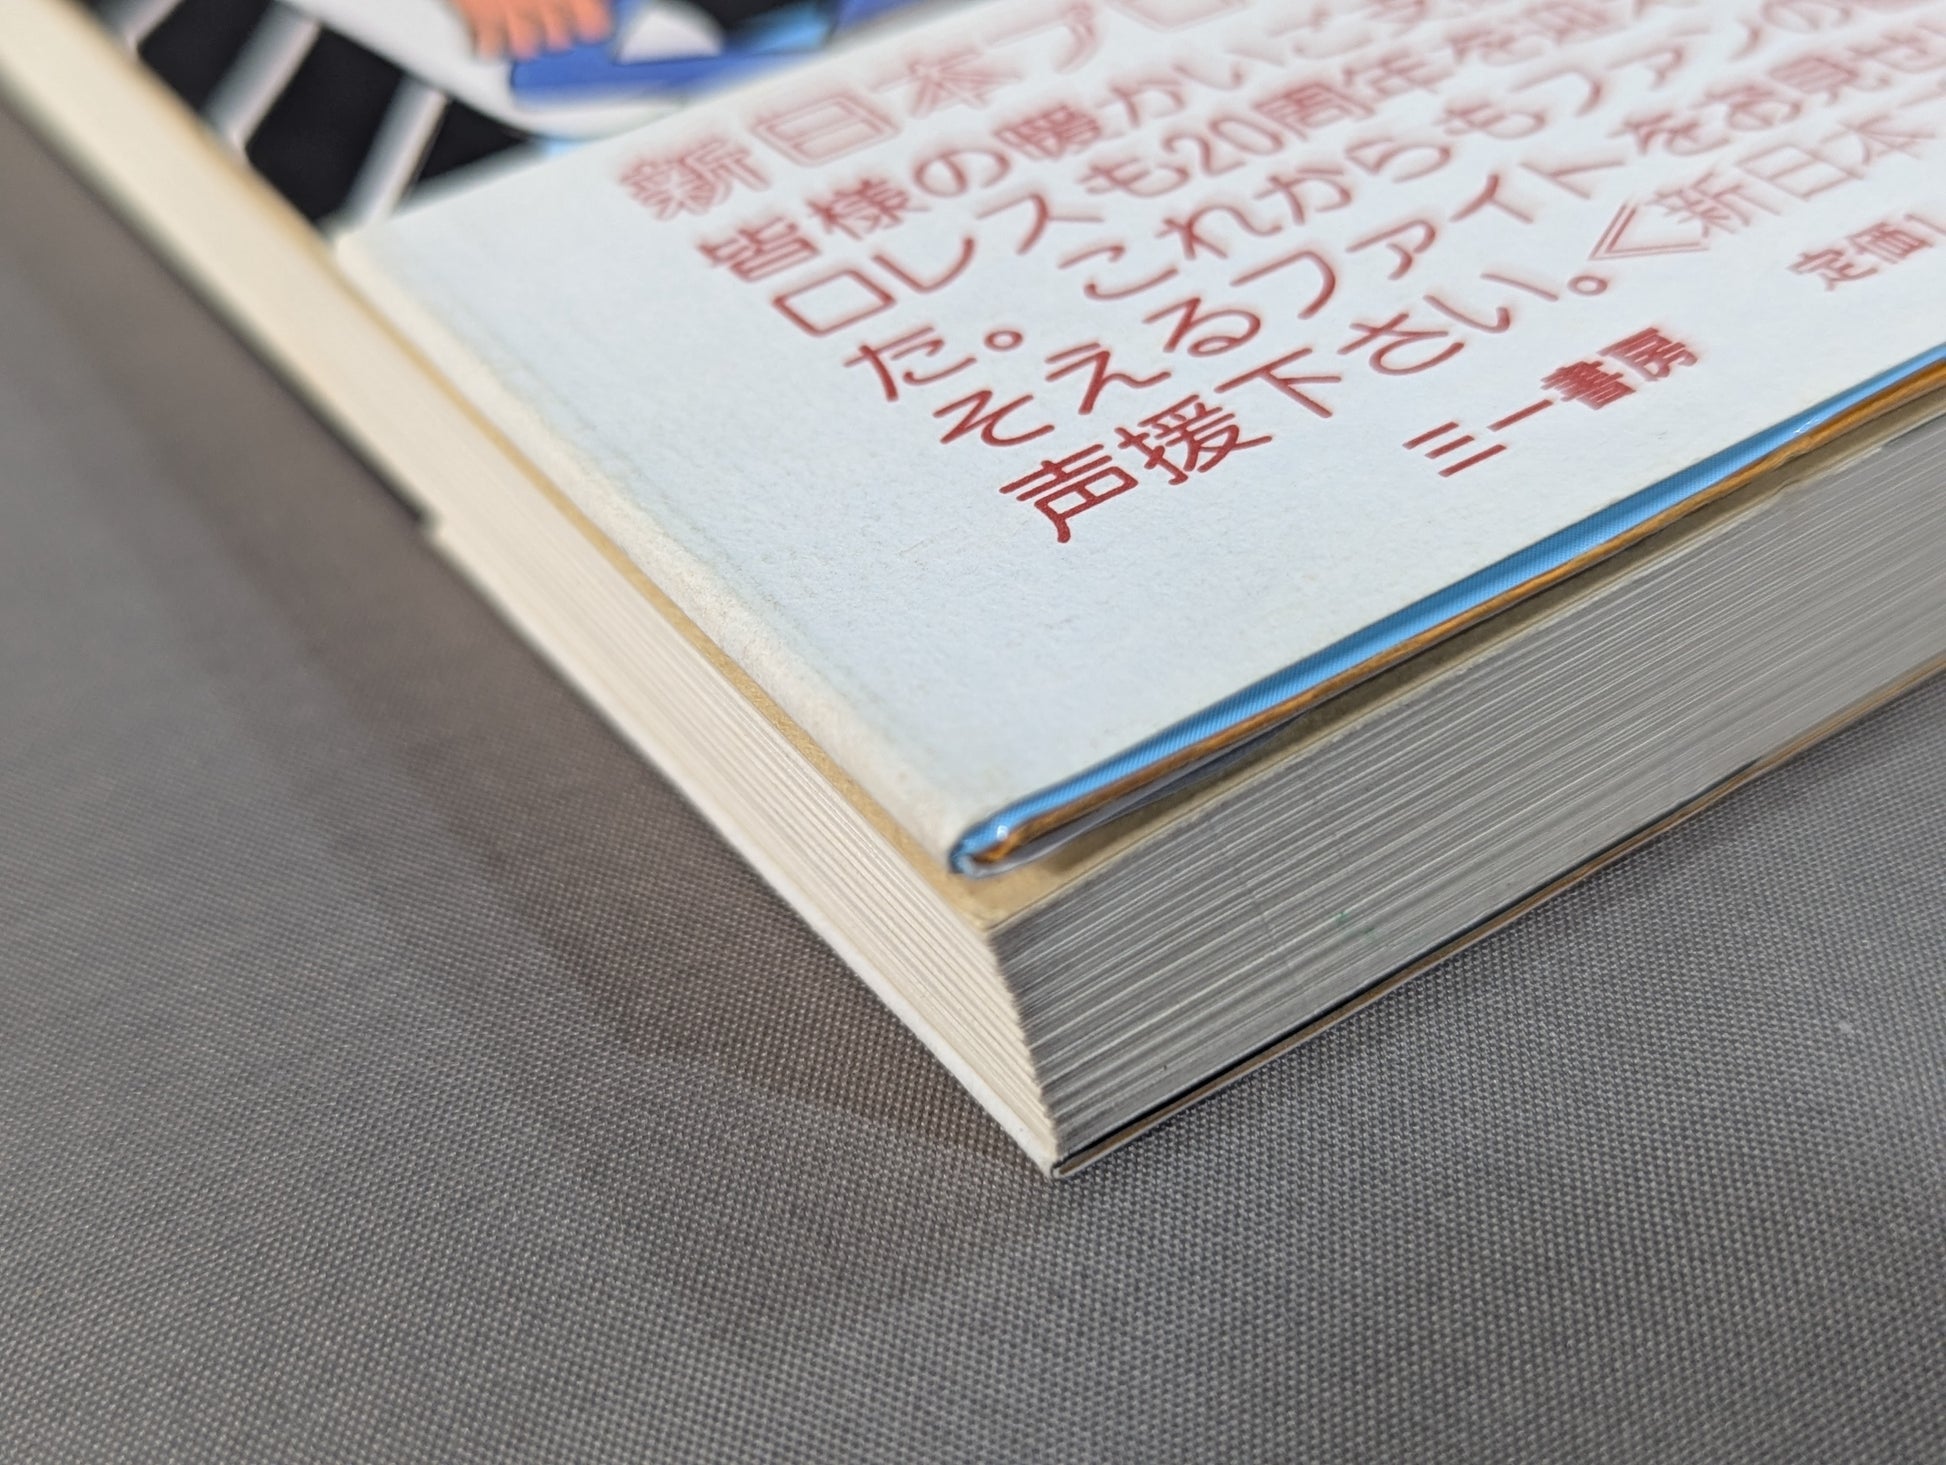 新日本プロ
皆様の暖かいご支
ロレスも20周年を迎え
た。これからもファンの
そえるファイトをお見せ
声援下さい。《新日本
三一書房
定価